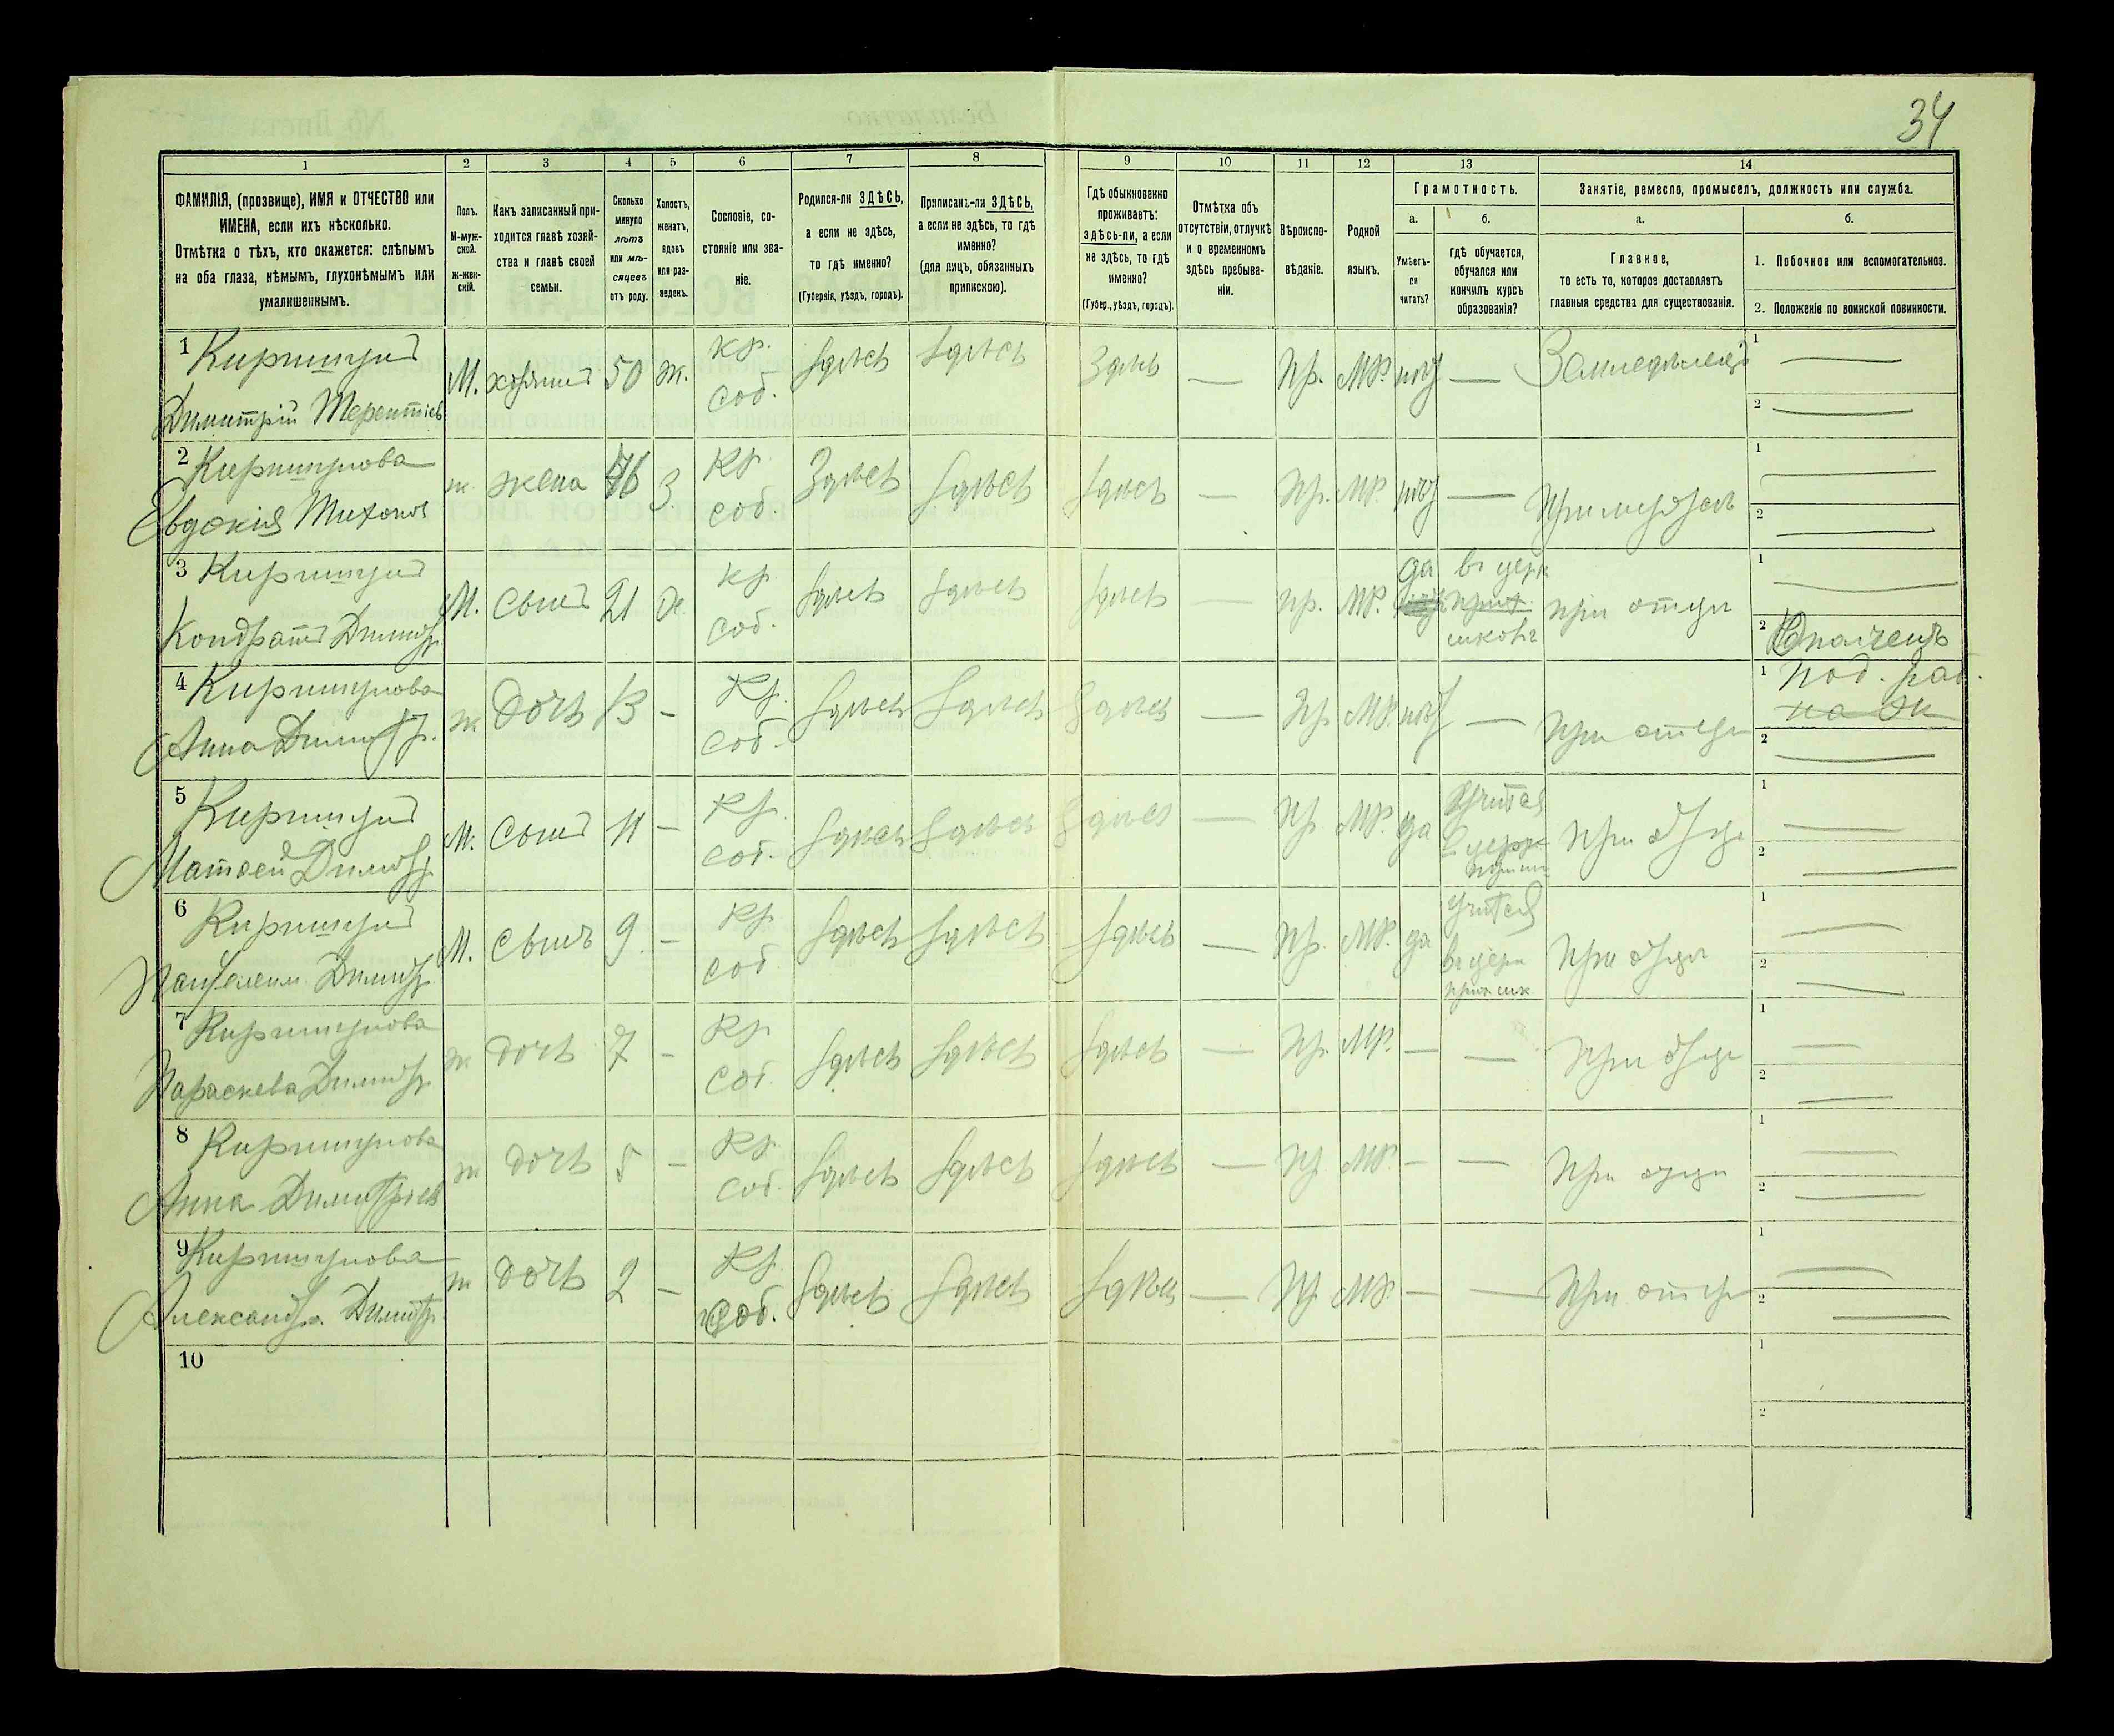 34
1 2 3 4 5 6 7 8 9 10 11 12 13 14
ФАМИЛІЯ, (прозвище), ИМЯ и ОТЧЕСТВО или
ИМЕНА, если ихъ нѣсколько.
Отмѣтка о тѣхъ, кто окажется: слѣпымъ
на оба глаза, нѣмымъ, глухонѣмымъ или
умалишеннымъ.
Полъ.
М-муж-
ской.
ж-жен-
скій.
Какъ записанный при-
ходится главѣ хозяй-
ства и главѣ своей
семьи.
Сколько
минуло
лѣтъ
или мѣ-
сяцевъ
отъ роду.
Холостъ,
женатъ,
вдовъ
или раз-
веденъ.
Сословіе, со-
стояніе или зва-
ніе.
Родился-ли ЗДѢСЬ,
а если не здѣсь,
то гдѣ именно?
(Губернія, уѣздъ, городъ).
Приписанъ-ли ЗДѢСЬ,
а если не здѣсь, то гдѣ
именно?
(для лицъ, обязанныхъ
припискою).
Гдѣ обыкновенно
проживаетъ:
здѣсь-ли, а если
не здѣсь, то гдѣ
именно?
(Губер., уѣздъ, городъ).
Отмѣтка объ
отсутствіи, отлучкѣ
и о временномъ
здѣсь пребыва-
ніи.
Вѣроиспо-
вѣданіе.
Родной
языкъ.
Грамотность.
а. б.
Умѣетъ-
ли
читать?
гдѣ обучается,
обучался или
кончилъ курсъ
образованія?
Занятіе, ремесло, промыселъ, должность или служба.
а. б.
Главное,
то есть то, которое доставляетъ
главныя средства для существованія.
1. Побочное или вспомогательное.
2. Положеніе по воинской повинности.
1
Димитрій Терентіев
М. хозяинъ 50 ж. кр. соб. здѣсь здѣсь здѣсь — Пр. МР. нѣт —
1 —
2 —
2
Евдокія Тихонов
ж. жена 46 З кр. соб. Здѣсь здѣсь здѣсь — Пр. МР. нѣт —
1 —
2 —
3
Кондратъ Димитр
М. сынъ 21 кр. соб. здѣсь здѣсь здѣсь — Пр. МР. да
въ церк
при отцѣ
1 —
2
4
Анна Димитр.
ж дочь 13 - Кр. соб. здѣсь здѣсь здѣсь — Пр. МР. нѣт — При отцѣ
1
2 —
5
Матвей Димитр
М. сынъ 11 - Кр. соб. здѣсь здѣсь здѣсь — Пр. МР. да
учится
При отце
1 —
2 —
6
Пантелеим Димитр
М. сынъ 9 - Кр. соб здѣсь здѣсь здѣсь — Пр. МР. да
учится
въ церк
При отцѣ
1 —
2 —
7
Параскева Димитр
ж дочь 7 - Кр. соб. здѣсь здѣсь здѣсь — Пр. МР. — — При отце
1 —
2 —
8
Анна Димитріев
ж дочь 5 - Кр. соб. здѣсь здѣсь здѣсь — Пр. МР. — — При отце
1 —
2 —
9
Александра Димитр
ж дочь 2 - Кр. соб. здѣсь здѣсь здѣсь — Пр. МР. — — При отце
1 —
2 —
10
1
2